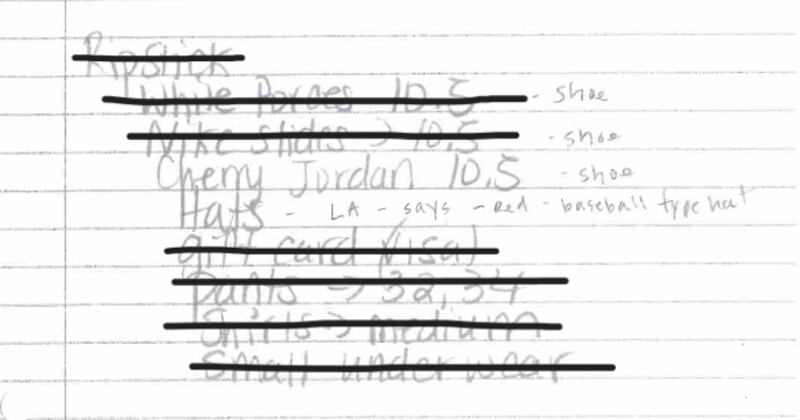 Ripstick
White Forces 10.5 - shoe
Nike slides → 10.5 - shoe
Cherry Jordan 10.5 - shoe
Hats - LA - says - Red - baseball type hat
gift card (visa)
Pants → 32, 34
Shirts → medium
Small underwear